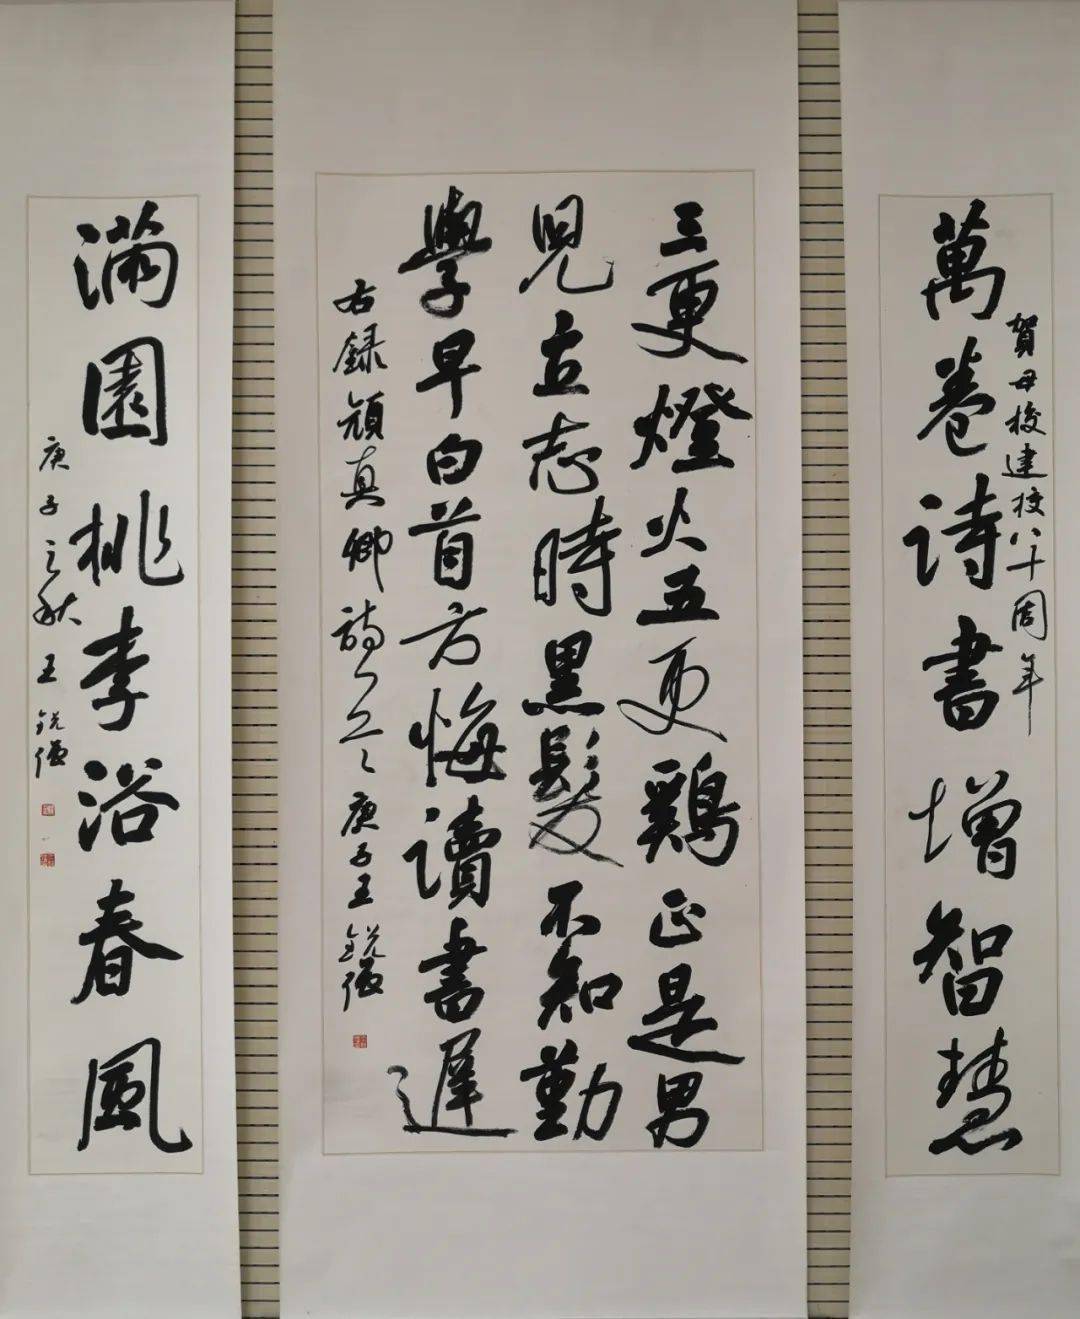 賀母校建校八十周年
萬卷詩書增智慧
三更燈火五更鷄正是男
兒立志時黑髮不知勤
學早白首方悔讀書遲
右錄顏真卿詩 庚子王銳
滿園桃李浴春風
庚子之秋 王銳